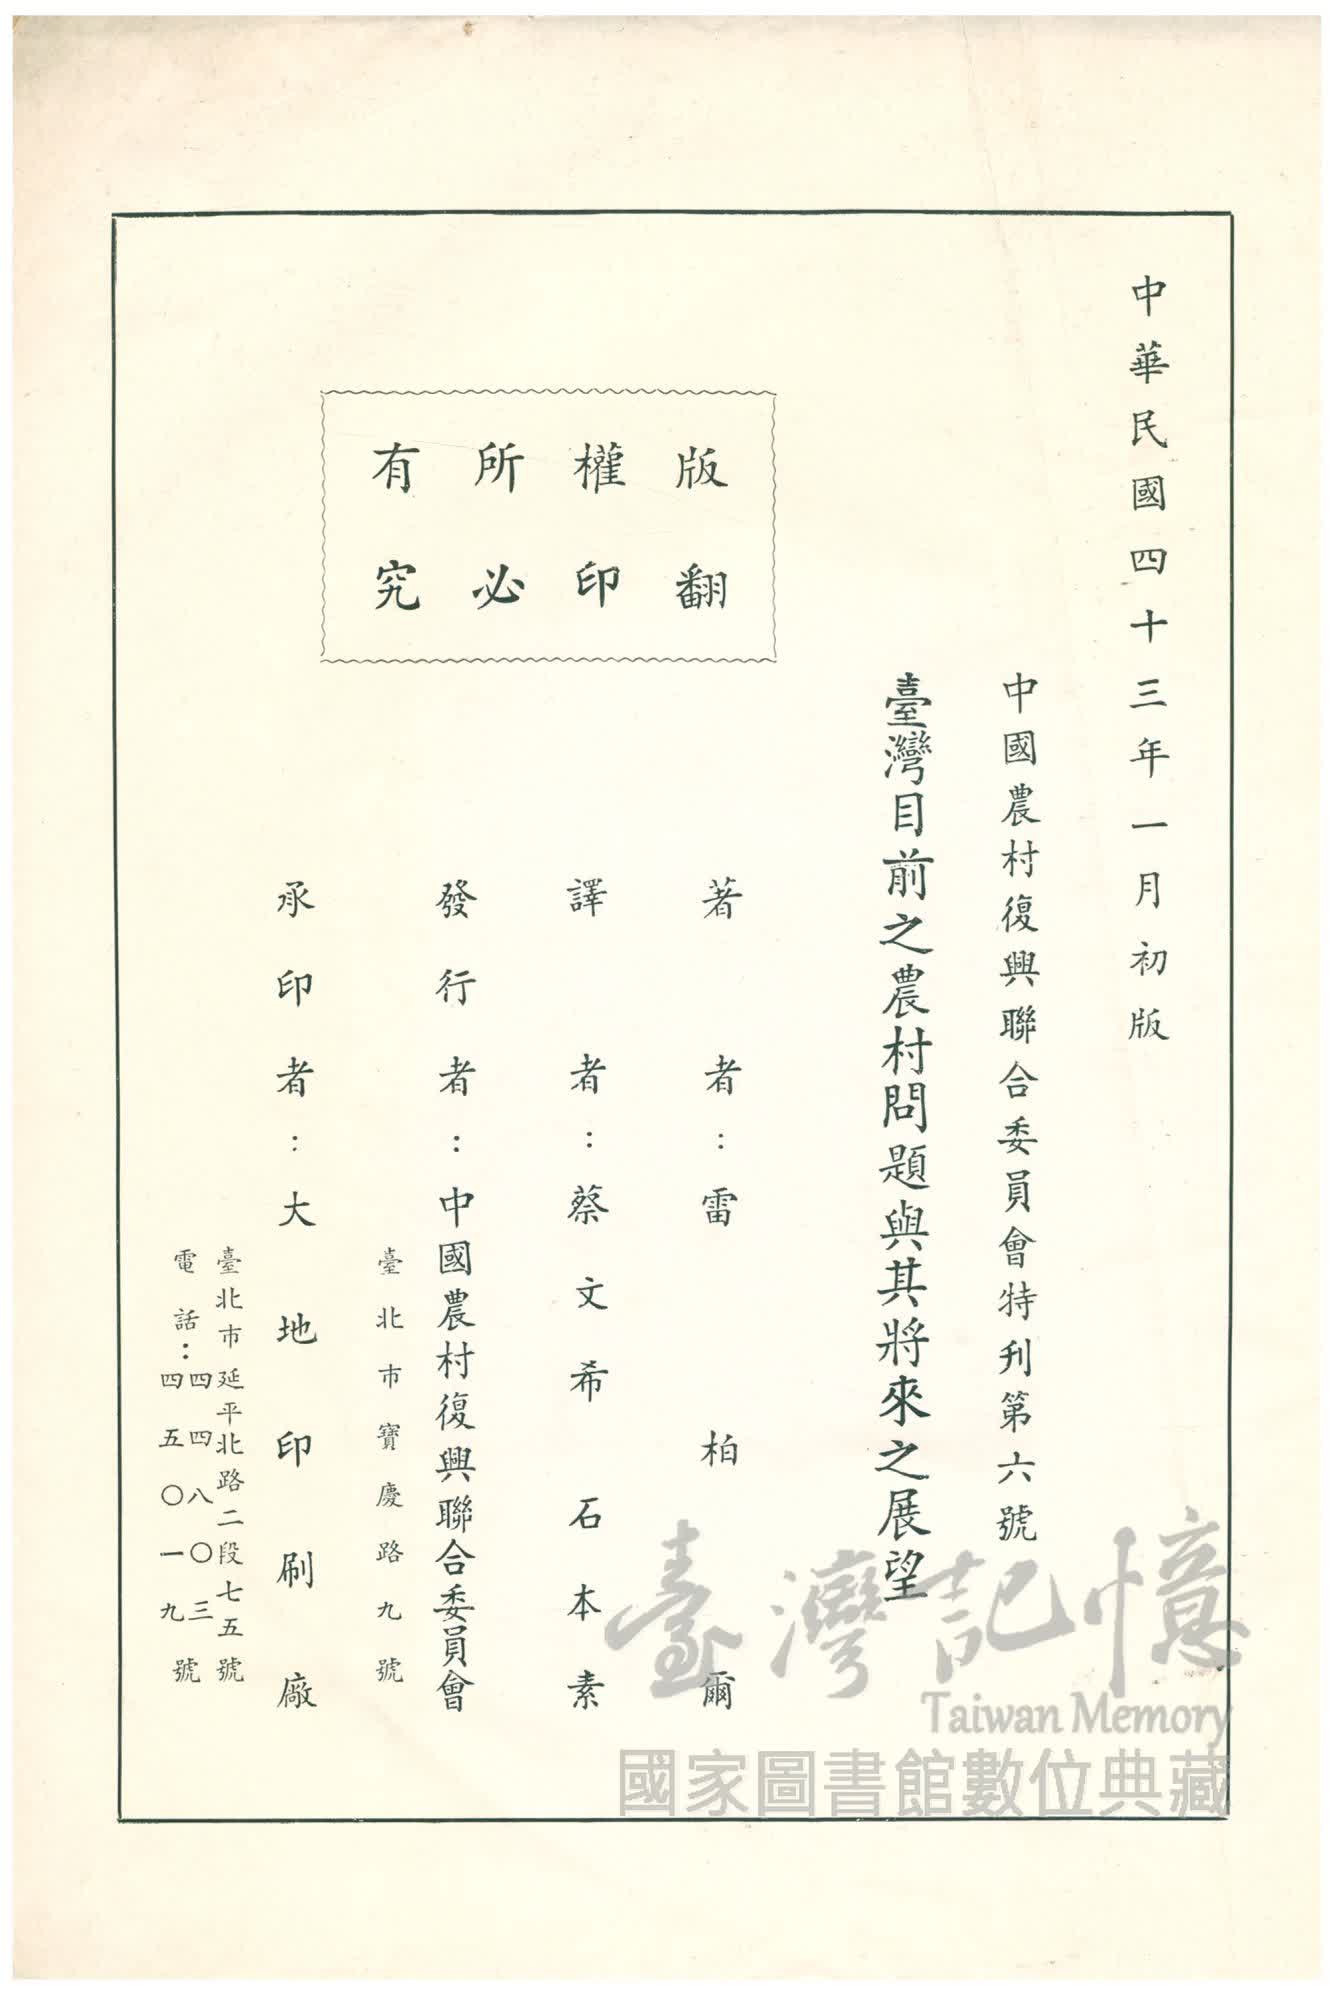 中華民國四十三年一月初版
中國農村復興聯合委員會特刊第六號
臺灣目前之農村問題與其將來之展望
版權所有
翻印必究
著者：雷柏爾
譯者：蔡文希 石本素
發行者：中國農村復興聯合委員會
臺北市寶慶路九號
承印者：大地印刷廠
臺北市延平北路二段七五號
電話：四四八〇三
四五〇一九號
臺灣記憶
Taiwan Memory
國家圖書館數位典藏